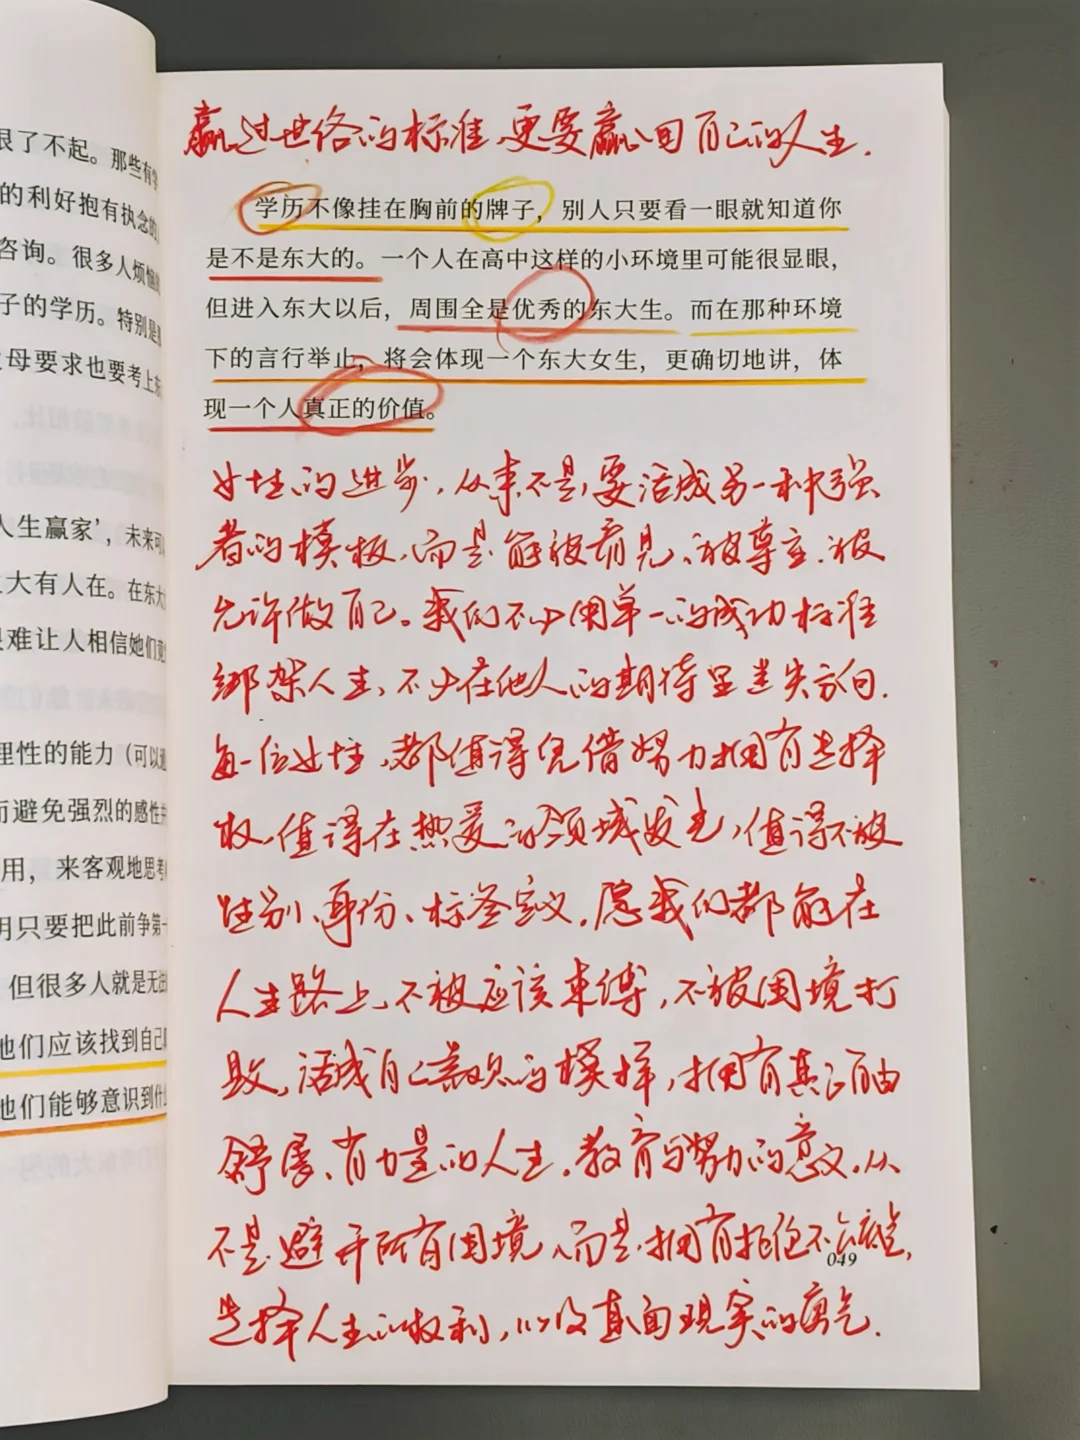 很了不起。那些有学
的利好抱有执念的
咨询。很多人烦恼
子的学历。特别是
母要求也要考上东
人生赢家’，未来可
大有人在。在东大
难让人相信她们
理性的能力（可以
而避免强烈的感性
用，来客观地思考
只要把此前争第一
但很多人就是无法
他们应该找到自己
他们能够意识到什
赢过世俗的标准，更要赢回自己的人生.
学历不像挂在胸前的牌子，别人只要看一眼就知道你
是不是东大的。一个人在高中这样的小环境里可能很显眼，
但进入东大以后，周围全是优秀的东大生。而在那种环境
下的言行举止，将会体现一个东大女生，更确切地讲，体
现一个人真正的价值。
女性的进步，从来不是要活成另一种强
者的模板，而是能被看见、被尊重、被
允许做自己。我们不必用单一的成功标准
绑架人生，不必在他人的期待里迷失方向.
每一位女性，都值得凭借努力拥有选择
权，值得在热爱的领域发光，值得不被
性别、身份、标签定义，愿我们都能在
人生路上，不被应该束缚，不被困境打
败，活成自己喜欢的模样，拥有真正自由
舒展、有力量的人生。教育与努力的意义，从
不是避开所有困境，而是拥有托住不会
选择人生的权利，以及直面现实的勇气.
049